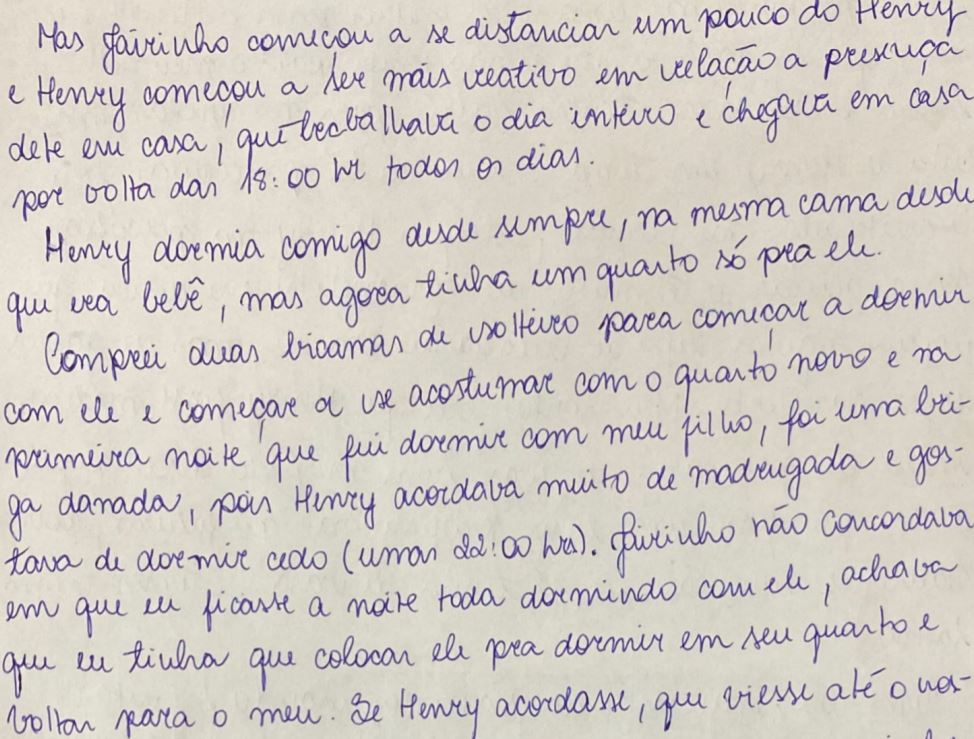 Mas Jairinho começou a se distanciar um pouco do Henry
e Henry começou a ser mais reativo em relação a presença
dele em casa, que trabalhava o dia inteiro e chegava em casa
por volta das 18:00 hr todos os dias.
Henry dormia comigo desde sempre, na mesma cama desde
que era bebê, mas agora tinha um quarto só pra ele.
Comprei duas bicamas de solteiro para começar a dormir
com ele e começar a se acostumar com o quarto novo e na
primeira noite que fui dormir com meu filho, foi uma bri-
ga danada, pois Henry acordava muito de madrugada e gos-
tava de dormir cedo (umas 22:00 hrs). Jairinho não concordava
em que eu ficasse a noite toda dormindo com ele, achava
que eu tinha que colocar ele pra dormir em seu quarto e
voltar para o meu. Se Henry acordasse, que viesse até o nos-